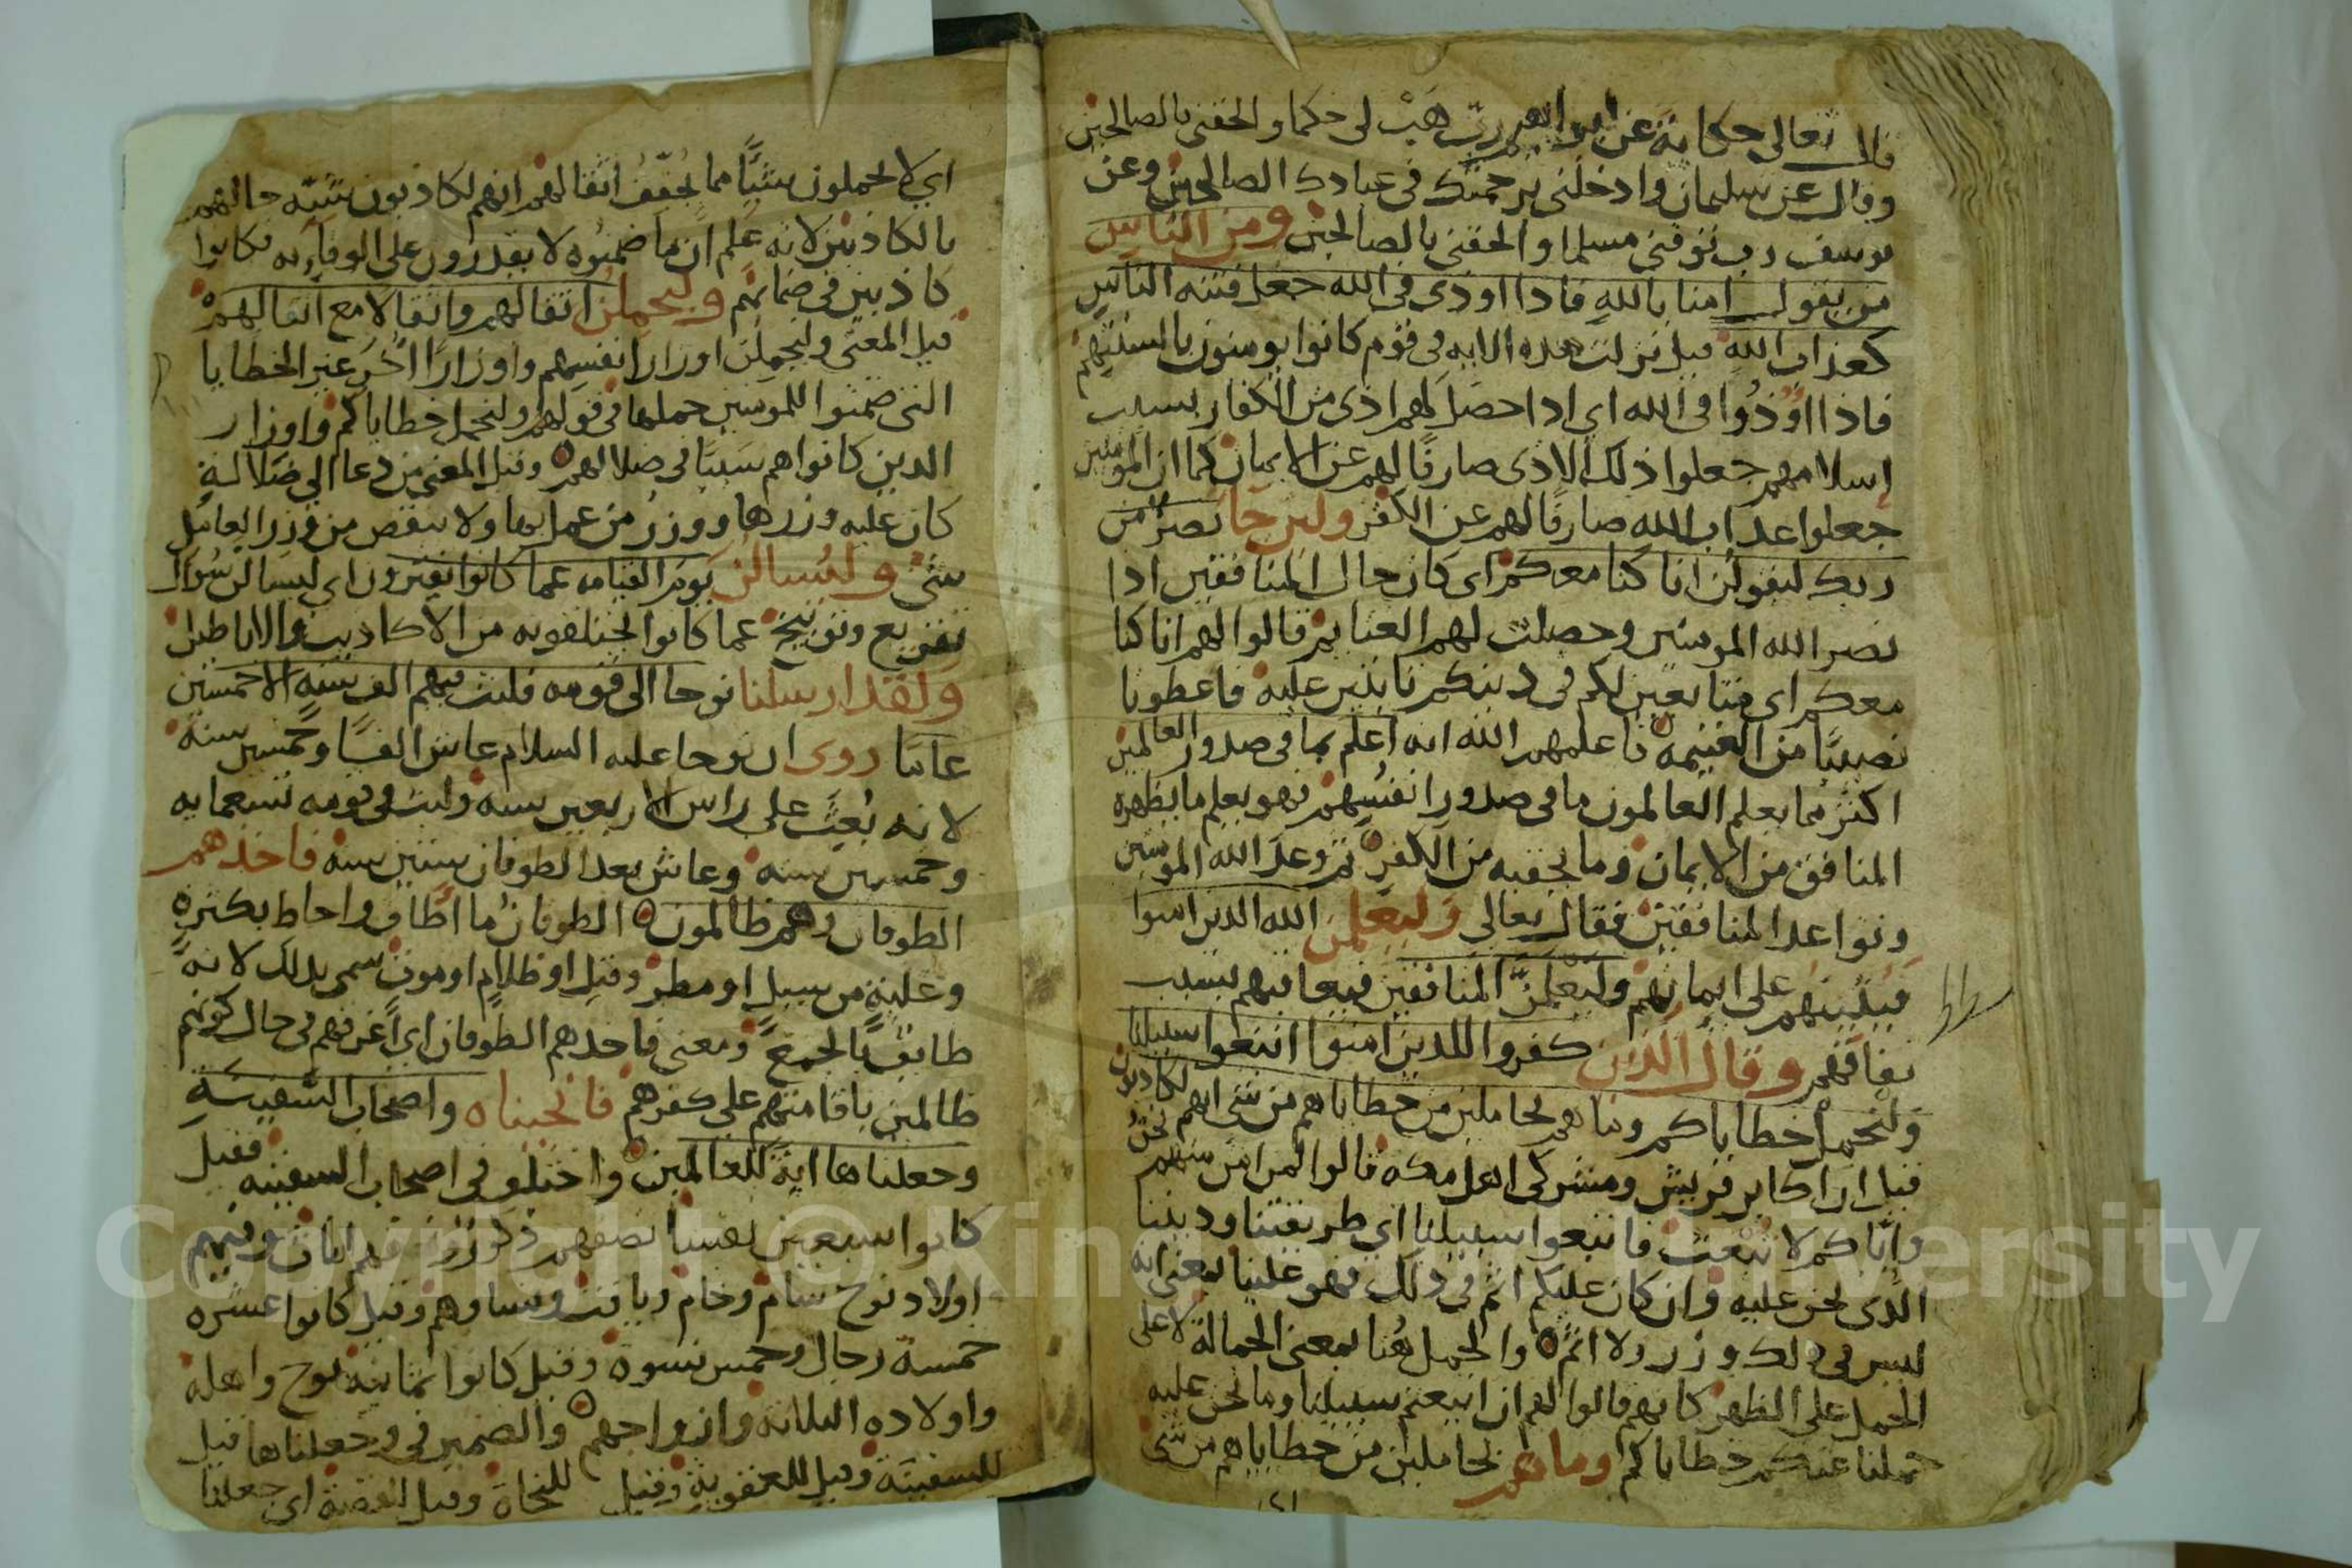 قال تعالى حكاية عن ابراهيم رب هَبْ لى حكما والحقنى بالصالحين
وقال عن سليمان وادخلنى برحمتك فى عبادك الصالحين وعن
يوسف رب توفنى مسلما والحقنى بالصالحين ومن الناس
من يقول امنا بالله فاذا اوذى فى الله جعل فتنه الناس
كعذاب الله قيل نزلت هذه الايه فى قوم كانوا يومنون بالسنتهم
فاذا اوذُوا فى الله اى اذا حصَل لهم اذى من الكفار بسبب
إسلامهم جعلوا ذلك الاذى صارفًا لهم عن الايمان كما ان المومنين
جعلوا عذاب الله صارفًا لهم عن الكفر ولين جا نصرٌ من
ربك ليقولن انا كنا معكم اى كان حال المنافقين اذا
نصر الله المومنين وحصلت لهم الغنايم قالوا لهم انا كنا
معكم اى متابعين لكم فى دينكم ثابتين عليه فاعطونا
نصيبًا من الغنيمه فاعلمهم الله انه اعلم بما فى صدور العالمين
اكثر مما يعلم العالمون ما فى صدور انفسهم فهو يعلم ما يظهره
المنافق من الايمان وما يخفيه من الكفر ثم وعد الله المومنين
وتواعد المنافقين فقال تعالى وليعلمن الله الذين امنوا
فيُثيبهم على ايمانهم وليعلمنَّ المنافقين فيعاقبهم بسبب
نفاقهم وقال الذين كفروا للذين امنوا اتبعوا سبيلنا
ولنحمل خطاياكم وما هم بحاملين من خطاياهم من شى انهم لكاذبون
قيل ان اكابر قريش ومشركى اهل مكه قالوا لمن امن منهم نحنُ
واياكم لا نبعث فاتبعوا سبيلنا اى طريقتنا وديننا
الذى نحن عليه وان كان عليكم اثم فى ذلك فهو علينا بمعنى انه
ليس فى ذلك وزر ولا اثم والحمل هُنا بمعنى الحمالة لا على
الحمل على الظهر كانهم قالوا لهم ان اتبعتم سبيلنا وما نحن عليه
حملنا عنكم خطاياكم وما هم بحاملين من خطاياهم من شى
اى لا يحملون شيًّا مما يُخفّفُ اثقالهم انهم لكاذبون شبّه حالهم
بالكاذبين لانه علم ان ما ضمنُوه لا يقدرون على الوفاء به فكانوا
كاذبين فى ضمانهم وليحملن اثقالهم واثقالا مع اثقالهم
قيل المعنى وليحملن اوزار انفسهم واوزارًا اخَر غير الخطايا
التى ضمنوا للمومنين حملها فى قولهم ولنحمل خطاياكم واوزار
الذين كانوا هم سَببًا فى ضلالهم وقيل المعنى من دعا الى ضلالة
كان عليه وزرها ووزر من عمل بها ولا ينقص من وزر العامل
شى وليُسالن يوم القيامه عما كانوا يفترون اى ليسالن سُوال
تقريع وتوبيخ عما كانوا يختلقونه من الاكاذيب والاباطيل
ولقد ارسلنا نوحا الى قومه فلبث فيهم الف سنه الا خمسين
عاما روى ان نوحا عليه السلام عاش الفًا وخمسين سنة
لانه بُعِث على راس الاربعين سنه ولبث فى قومه تسعمايه
وخمسين سنه وعاش بعد الطوفان ستين سنه فاخذهم
الطوفان وهم ظالمون الطوفانُ ما اطاف واحاط بكثرهٍ
وغلبةٍ من سيلٍ او مطرٍ وقيل او ظلامٍ او موت سمى بذلك لانه
ظالمين باقامتهم على كفرهم فانجيناه واصحاب السفينةِ
وجعلناها ايةً للعالمين واختلفو فى اصحاب السفينه فقيل
كانوا سبعين نفسا نصفهم ذكور ونصفهم اناث وفيهم
اولاد نوح سام وحام ويافث ونساوهم وقيل كانوا عشره
خمسة رجال وخمس نسوة وقيل كانوا ثمانيه نوح واهله
واولاده الثلاثه وازواجهم والضمير فى وجعلناها قيل
للسفينة وقيل للعقوبة وقيل للنجاة وقيل القصة اى جعلنا
Copyright © King Saud University